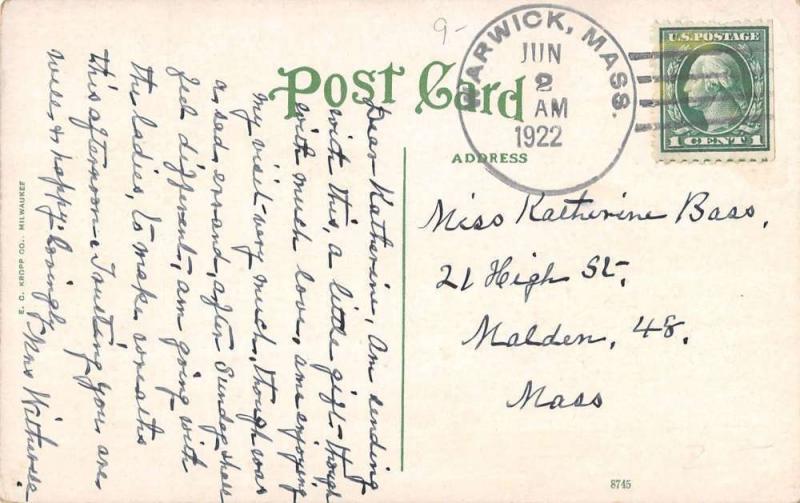 9-
WARWICK, MASS.
JUN
2
AM
1922
U.S. POSTAGE
1 CENT 1
Post Card
ADDRESS
Miss Katherine Bass,
21 High St,
Malden, 48.
Mass
Dear Katherine, Am sending
with this, a little gift - though
with much love, am enjoying
my visit very much, though was
a sad errand, after Sunday shall
feel different, am going with
the ladies, to make wreaths
this afternoon - Trusting you are
well, & happy. Lovingly
Mrs
E. C. KROPP CO., MILWAUKEE
8745